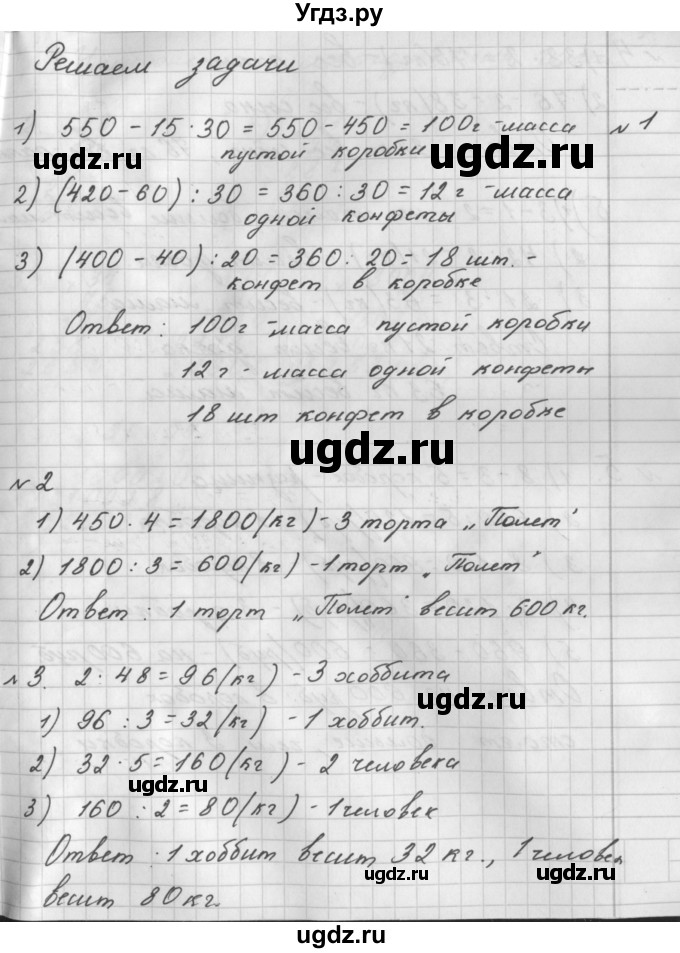 Угдз.ру
Решаем задачи
1) 550 - 15 · 30 = 550 - 450 = 100г - масса № 1
пустой коробки
ugdz.ru
2) (420 - 60) : 30 = 360 : 30 = 12 г - масса
одной конфеты
3) (400 - 40) : 20 = 360 : 20 = 18 шт. -
конфет в коробке
Ответ: 100г - масса пустой коробки
12 г - масса одной конфеты
18 шт конфет в коробке
ugdz.ru
№ 2
1) 450 · 4 = 1800 (кг) - 3 торта „Полет"
ugdz.ru
2) 1800 : 3 = 600 (кг) - 1 торт „Полет"
Ответ : 1 торт „Полет" весит 600 кг.
№ 3. 2 · 48 = 96 (кг) - 3 хоббита
ugdz.ru
1) 96 : 3 = 32 (кг) - 1 хоббит.
2) 32 · 5 = 160 (кг) - 2 человека
ugdz.ru
3) 160 : 2 = 80 (кг) - 1 человек
Ответ : 1 хоббит весит 32 кг., 1 человек
весит 80 кг.
ugdz.ru
ugdz.ru